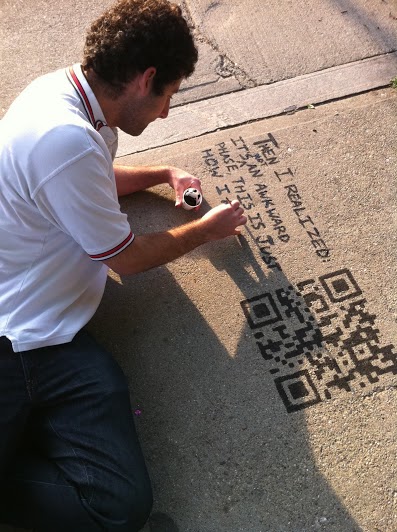 THEN I REALIZED:
IT'S AN AWKWARD
PHASE THIS IS JUST
HOW